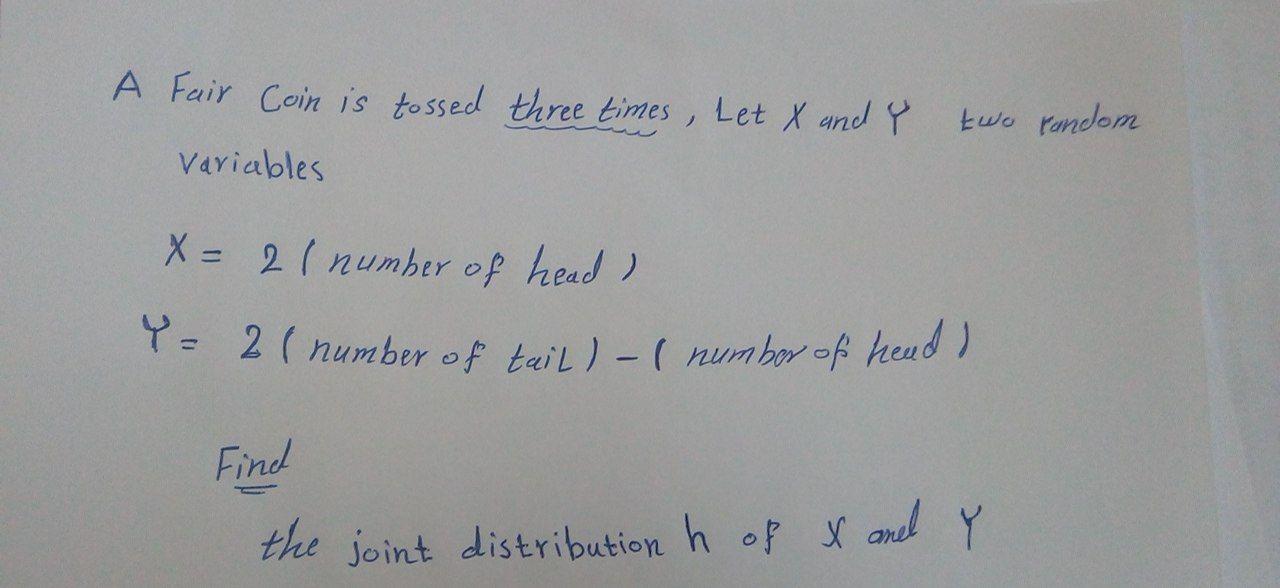 A Fair Coin is tossed three times, Let X and Y two random
variables
X = 2 ( number of head )
Y = 2 ( number of tail ) - ( number of head )
Find
the joint distribution h of X and Y